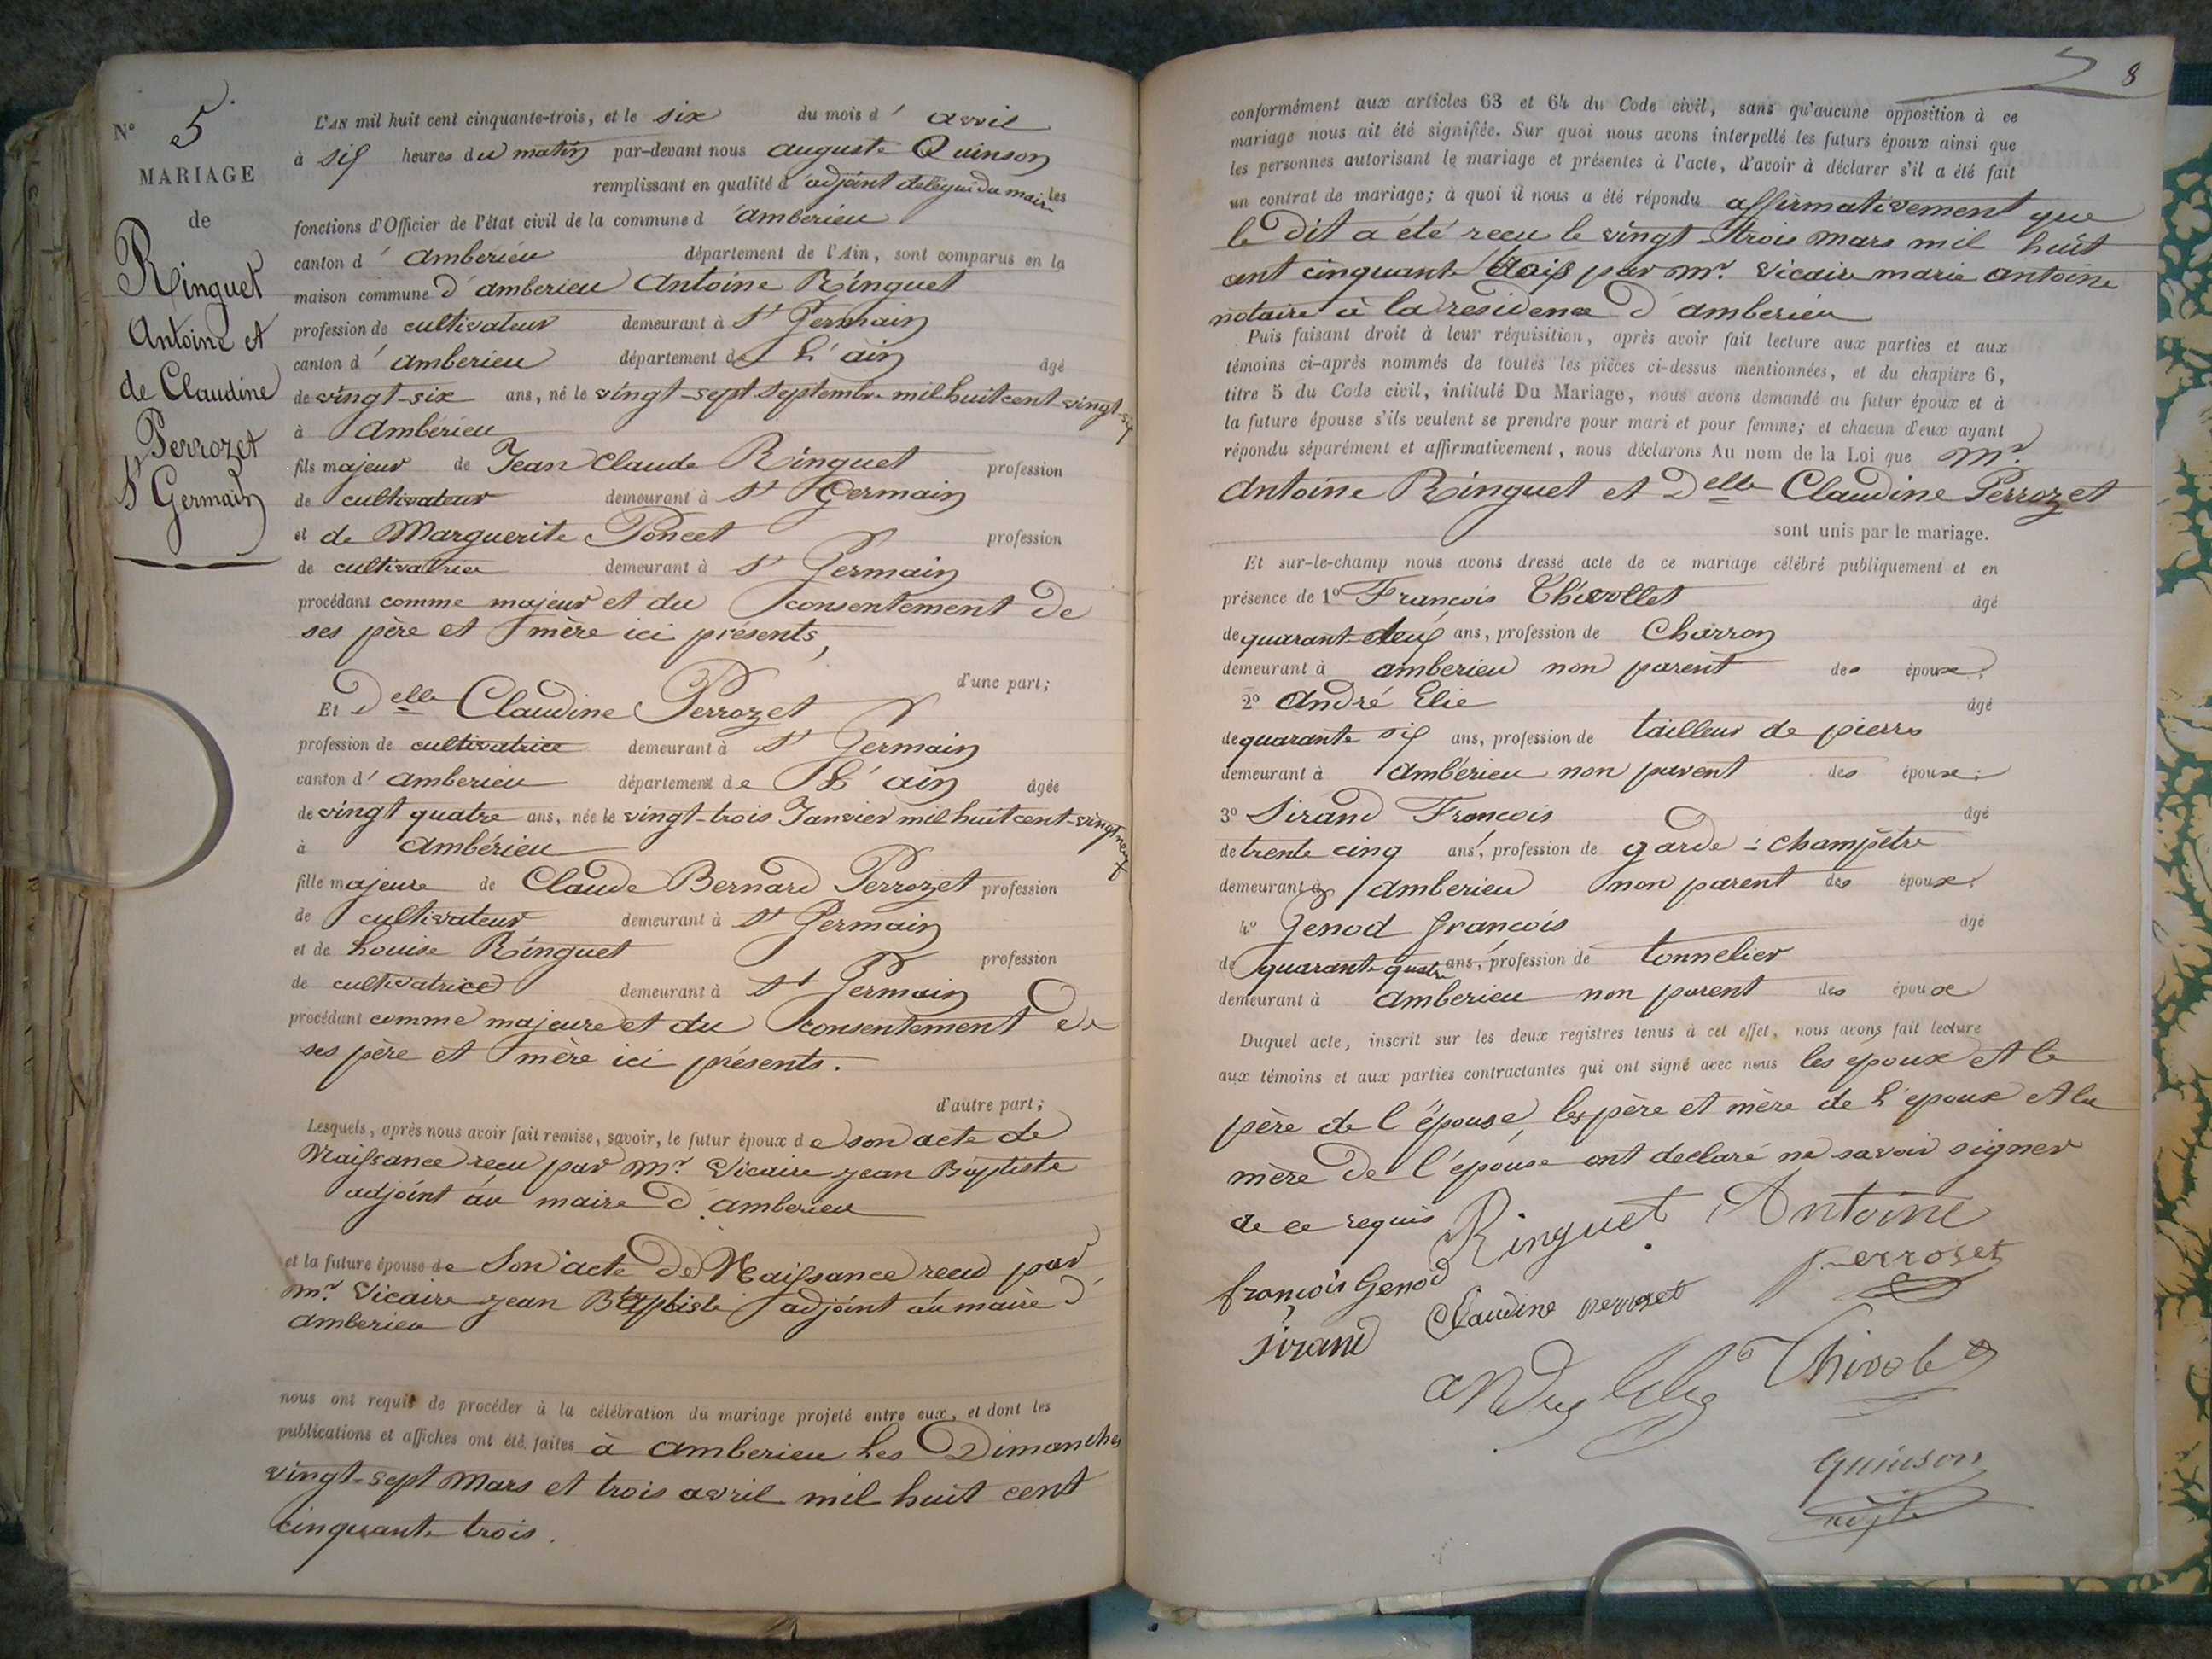 N° 5
MARIAGE
de
Ringuet
Antoine et
de Claudine
Perrozet
St Germain
L'AN mil huit cent cinquante-trois, et le six du mois d' avril
à six heures du matin par-devant nous auguste Quinson
remplissant en qualité d'adjoint delégué du maire les
fonctions d'Officier de l'état civil de la commune d'amberieu
canton d'amberieu département de l'Ain, sont comparus en la
maison commune d'amberieu Antoine Ringuet
profession de cultivateur demeurant à St Germain
canton d'amberieu département de L'ain âgé
de vingt-six ans, né le vingt-sept Septembre mil huit cent vingt-six
à Ambérieu
fils majeur de Jean Claude Ringuet profession
de cultivateur demeurant à St Germain
et de Marguerite Poncet profession
de cultivatrice demeurant à St Germain
procédant comme majeur et du consentement de
ses père et mère ici présents,
d'une part;
Et Delle Claudine Perrozet
profession de cultivatrice demeurant à St Germain
canton d'amberieu département de L'ain âgée
de vingt quatre ans, née le vingt-trois Janvier mil huit cent-vingt neuf
à Ambérieu
fille majeure de Claude Bernard Perrozet profession
de cultivateur demeurant à St Germain
et de Louise Ringuet profession
de cultivatrice demeurant à St Germain
procédant comme majeure et du consentement de
ses père et mère ici présents.
d'autre part;
Lesquels, après nous avoir fait remise, savoir, le futur époux de son acte de
Naissance recu par Mr. Vicaire jean Baptiste
adjoint au maire d'amberieu
et la future épouse de Son acte de Naissance recu par
mr. Vicaire jean Baptiste adjoint au maire d'
amberieu
nous ont requis de procéder à la célébration du mariage projeté entre eux, et dont les
publications et affiches ont été faites à amberieu les Dimanches
vingt-sept Mars et trois avril mil huit cent
cinquante trois.
8
conformément aux articles 63 et 64 du Code civil, sans qu'aucune opposition à ce
mariage nous ait été signifiée. Sur quoi nous avons interpellé les futurs époux ainsi que
les personnes autorisant le mariage et présentes à l'acte, d'avoir à déclarer s'il a été fait
un contrat de mariage; à quoi il nous a été répondu affirmativement que
le dit a été recu le vingt-trois mars mil huit
cent cinquante trois par mr. Vicaire marie antoine
notaire à la residence d'amberieu
Puis faisant droit à leur réquisition, après avoir fait lecture aux parties et aux
témoins ci-après nommés de toutes les pièces ci-dessus mentionnées, et du chapitre 6,
titre 5 du Code civil, intitulé Du Mariage, nous avons demandé au futur époux et à
la future épouse s'ils veulent se prendre pour mari et pour femme; et chacun d'eux ayant
répondu séparément et affirmativement, nous déclarons Au nom de la Loi que Mr.
Antoine Ringuet et Delle Claudine Perrozet
sont unis par le mariage.
Et sur-le-champ nous avons dressé acte de ce mariage célébré publiquement et en
présence de 1° Francois Thévollet âgé
de quarante-deux ans, profession de Charron
demeurant à amberieu non parent des époux;
2° André Elie âgé
de quarante six ans, profession de tailleur de pierre
demeurant à Ambérieu non parent des époux;
3° Sirand Francois âgé
de trente cinq ans, profession de garde-champêtre
demeurant à amberieu non parent des époux;
4° Genod françois âgé
de quarante-quatre ans, profession de tonnelier
demeurant à amberieu non parent des époux
Duquel acte, inscrit sur les deux registres tenus à cet effet, nous avons fait lecture
aux témoins et aux parties contractantes qui ont signé avec nous les epoux et le
père de l'épouse, les père et mère de l'epoux et la
mère de l'épouse ont declaré ne savoir signer
de ce requis
Ringuet Antoine
perroset
françois Genod
Claudine perrozet
Sirand
Thivolet
Quinson
adjt